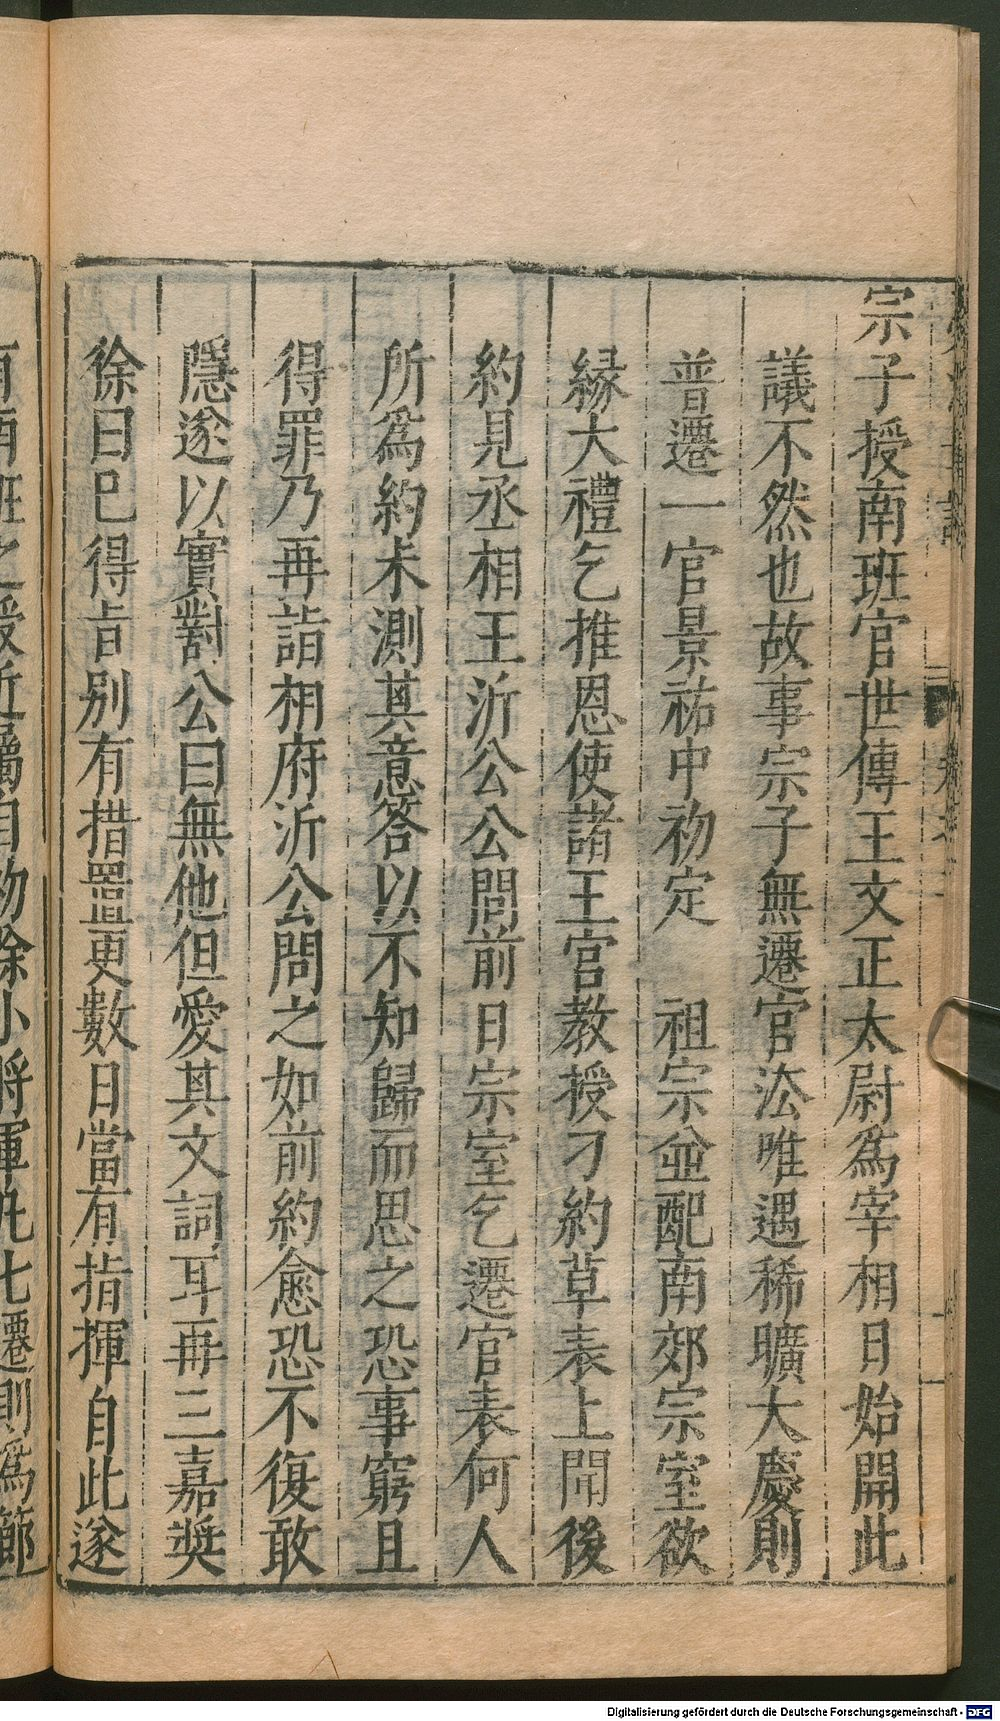 宗子授南班官世傳王文正太尉爲宰相日始開此
議不然也故事宗子無遷官法唯遇稀曠大慶則
普遷一官景祐中初定　祖宗並配南郊宗室欲
縁大禮乞推恩使諸王宮教授刁約草表上聞後
約見丞相王沂公公問前日宗室乞遷官表何人
所爲約未測其意答以不知歸而思之恐事窮且
得罪乃再詣相府沂公問之如前約愈恐不復敢
隱遂以實對公曰無他但愛其文詞耳再三嘉奬
徐曰已得旨别有措置更數日當有指揮自此遂
南班之授近屬自初除小將軍凡七遷則爲節
Digitalisierung gefördert durch die Deutsche Forschungsgemeinschaft - DFG